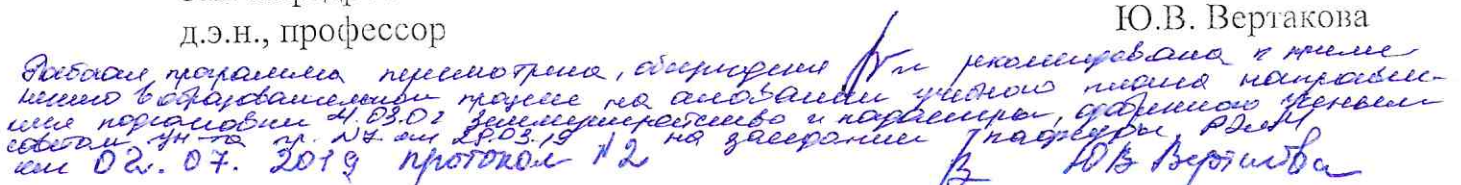 д.э.н., профессор
Ю.В. Вертакова
Рабочая программа пересмотрена, обсуждена и рекомендована к приме-
нению в образовательном процессе на основании учебного плана направле-
ния подготовки 21.03.02 Землеустройство и кадастры, одобренного Ученым
советом ун-та пр. №7 от 29.03.19 на заседании кафедры РЭиМ
от 02.07.2019 протокол №2 ЮВ Вертакова